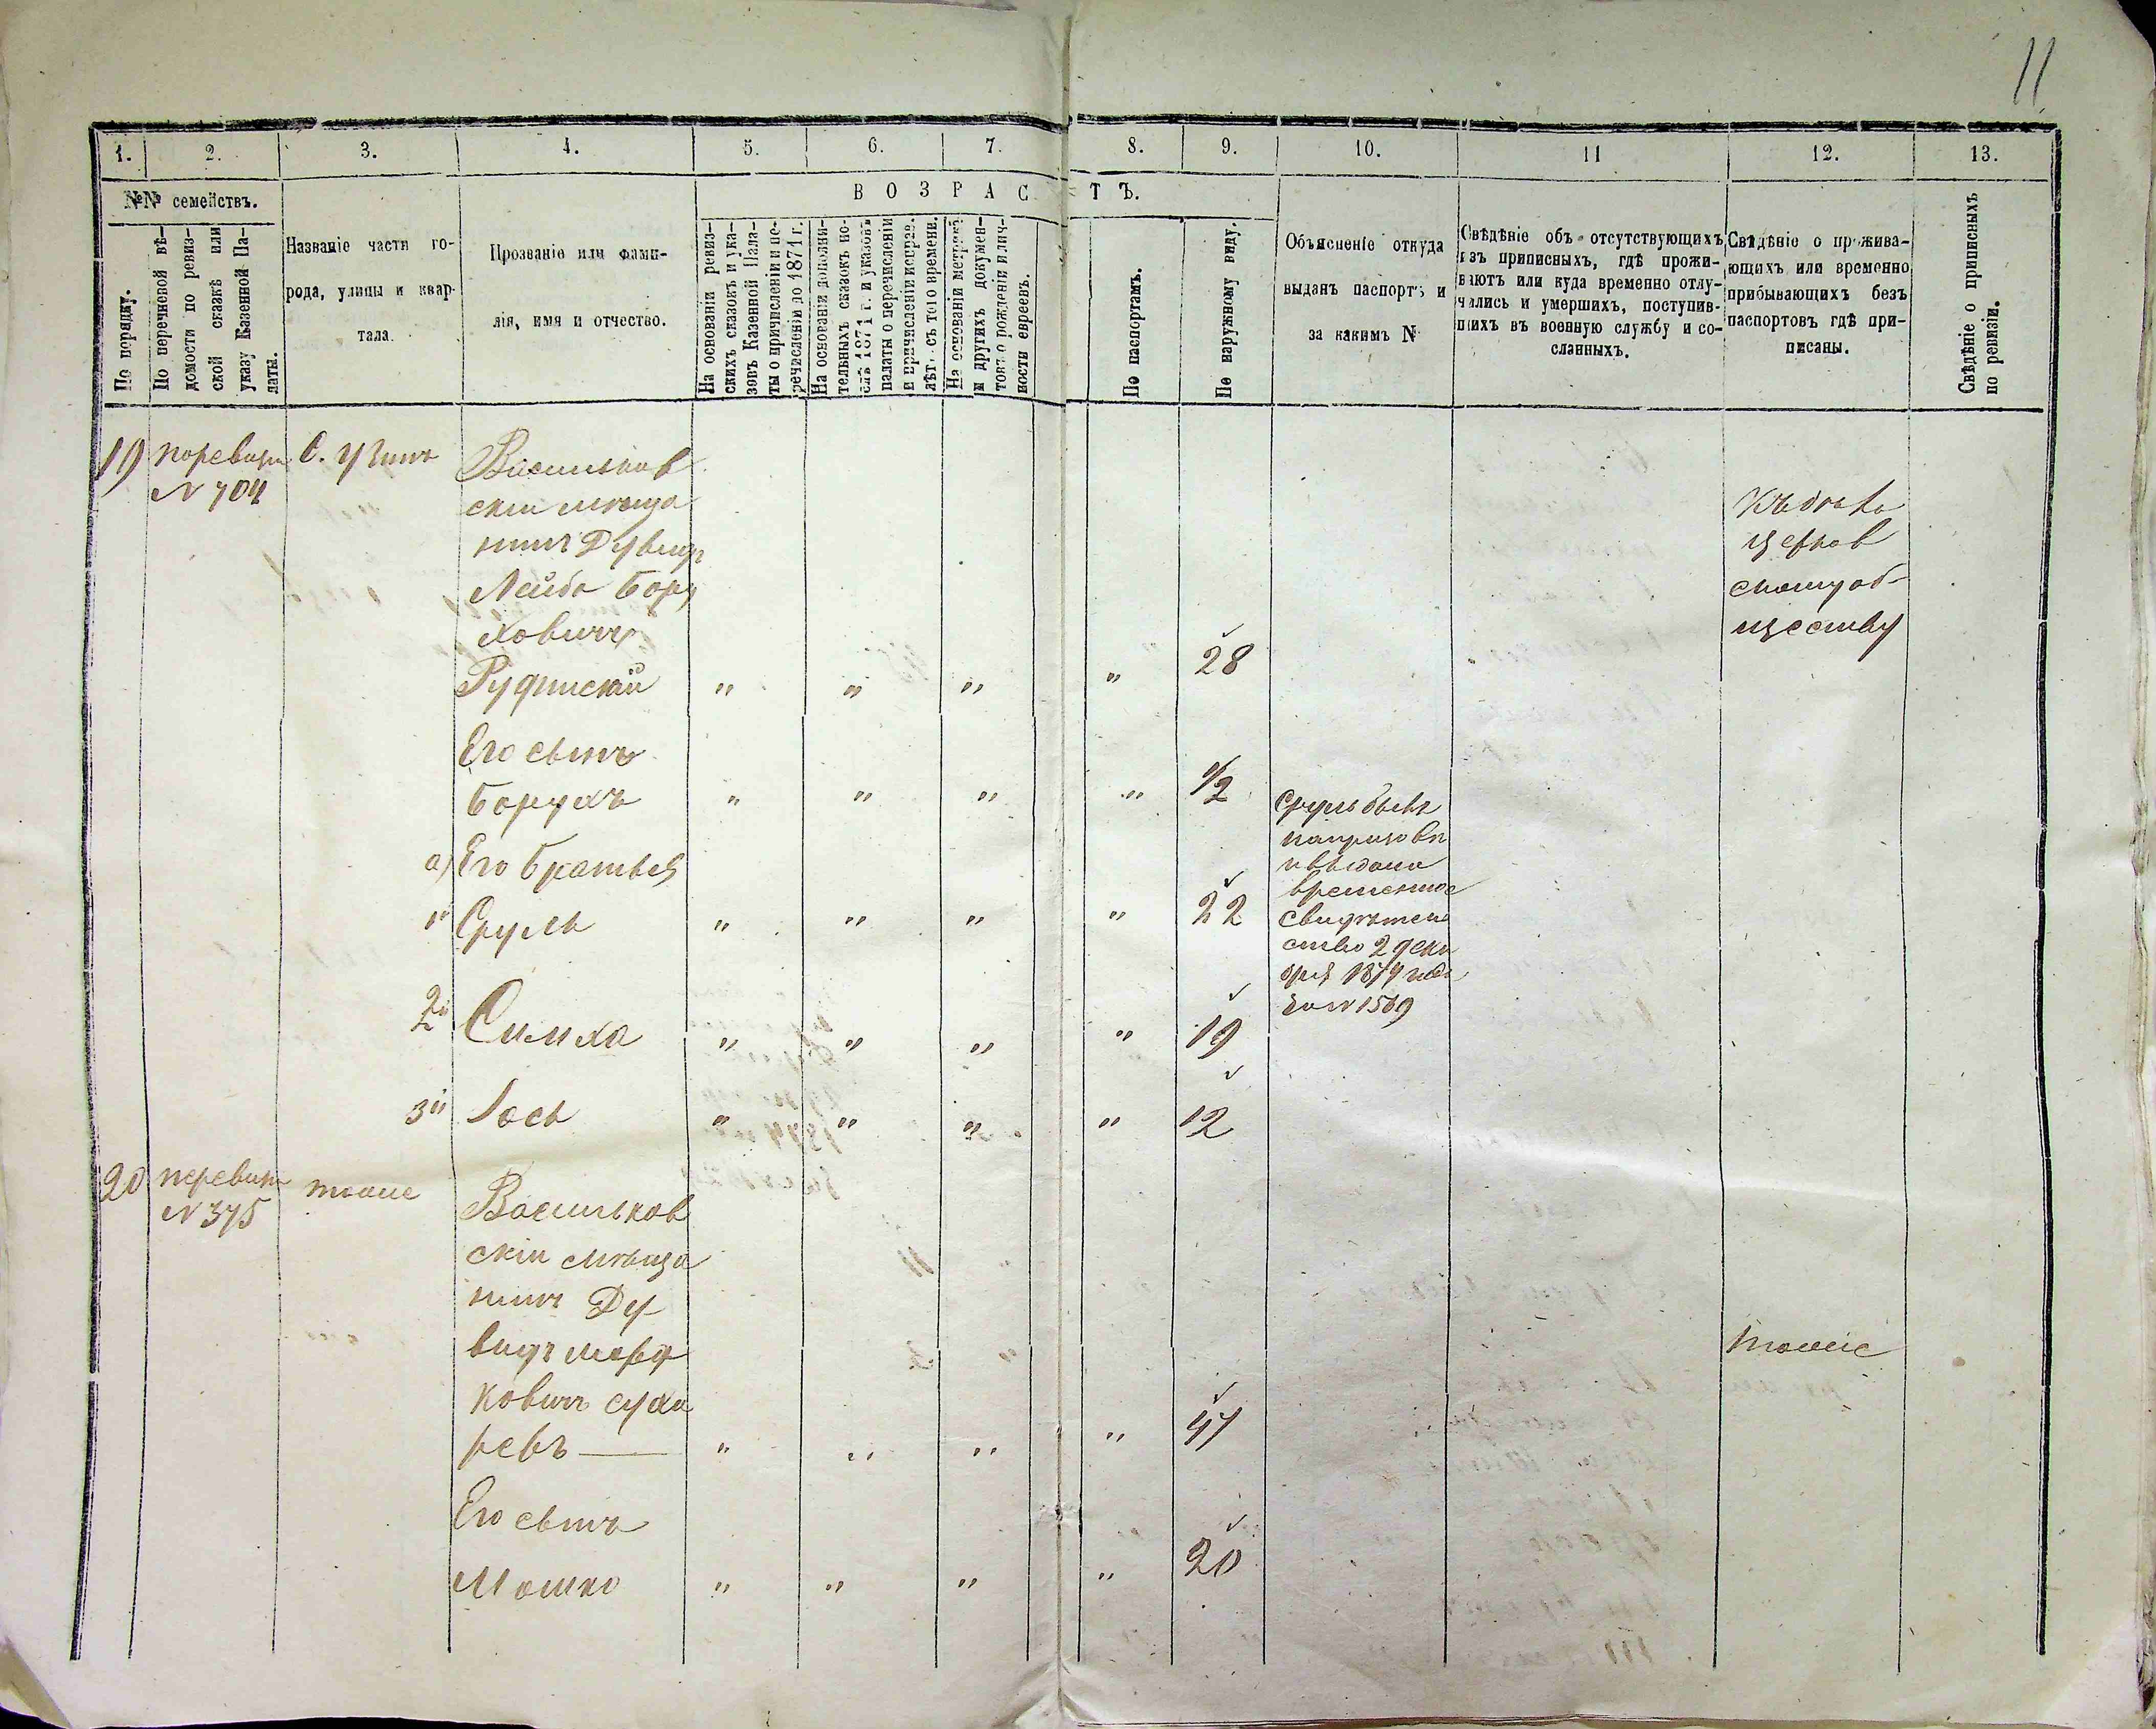 11
1. 2. 3. 4. 5. 6. 7. 8. 9. 10. 11 12. 13.
№№ семействъ.
ВОЗРАСТЪ.
По порядку.
По перечневой вѣ-
домости по ревиз-
ской сказкѣ или
указу Казенной Па-
латы.
Названіе части го-
рода, улицы и квар-
тала.
Прозваніе или фами-
лія, имя и отчество.
На основаніи ревиз-
скихъ сказокъ и ука-
зовъ Казенной Пала-
ты о причисленіи и пе-
речисленіи до 1871 г.
На основаніи дополни-
тельныхъ сказокъ по-
слѣ 1871 г. и указовъ
палаты о перечисленіи
и причисленіи исправ.
лѣтъ съ того времени.
На основаніи метрикъ
и другихъ докумен-
товъ о рожденіи и лич-
ности евреевъ.
По паспортамъ.
По наружному виду.
Объясненіе откуда
выданъ паспортъ и
за какимъ №
Свѣдѣніе объ отсутствующихъ
изъ приписныхъ, гдѣ прожи-
ваютъ или куда временно отлу-
чились и умершихъ, поступив-
шихъ въ военную службу и со-
сланныхъ.
Свѣдѣніе о прожива-
ющихъ или временно
прибывающихъ безъ
паспортовъ гдѣ при-
писаны.
Свѣдѣніе о приписныхъ
по ревизіи.
19) поревизи
N 704
Васильков
скій мѣща
нинъ Дувидъ
Лейба Бору
ховичъ
Рудинскій " " " " 28
Къ бѣло
церков
скому об-
ществу
Его сынъ
Борухъ " " " " 1/2
а) Его братья
1й Сруль " " " " 22
Сруль былъ
выдано
временное
свидѣтель
ство 2 дека
бря 1874 года
за N 1569
2й Симха " " " " 19
3й Іось " " " " 12
20 поревизи
N 375
тоже
Васильков
скій мѣща
нинъ Ду
видъ Морд
ковичъ Суха
ревъ — " " " " 47
тоже
Его сынъ
Мошко " " " " 20